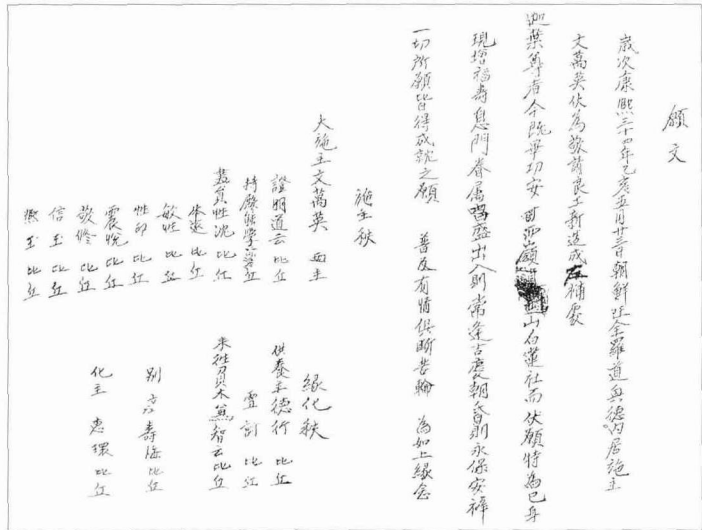 願文
歲次康熙三十四年乙亥五月廿三日朝鮮国全羅道興德內居施主
文萬英伏為敬請良工新造成左補處
迦葉尊者今既畢功安 山白蓮社而 伏願特為己身
現增福壽息門眷属昌盛出入則常逢吉慶朝昏則永保安裤
一切所願皆得成就之願 普及有情俱斷苦輪 為如上緣念
施主秩
大施主文萬英 両主
證明道云 比丘
持殿 比丘
性沈 比丘
比丘
敏性 比丘
性印 比丘
震悅 比丘
敬修 比丘
信玉 比丘
玉 比丘
緣化秩
供養主德行 比丘
雪訓 比丘
來往 負木 智云 比丘
別座 壽海 比丘
化主 惠環 比丘